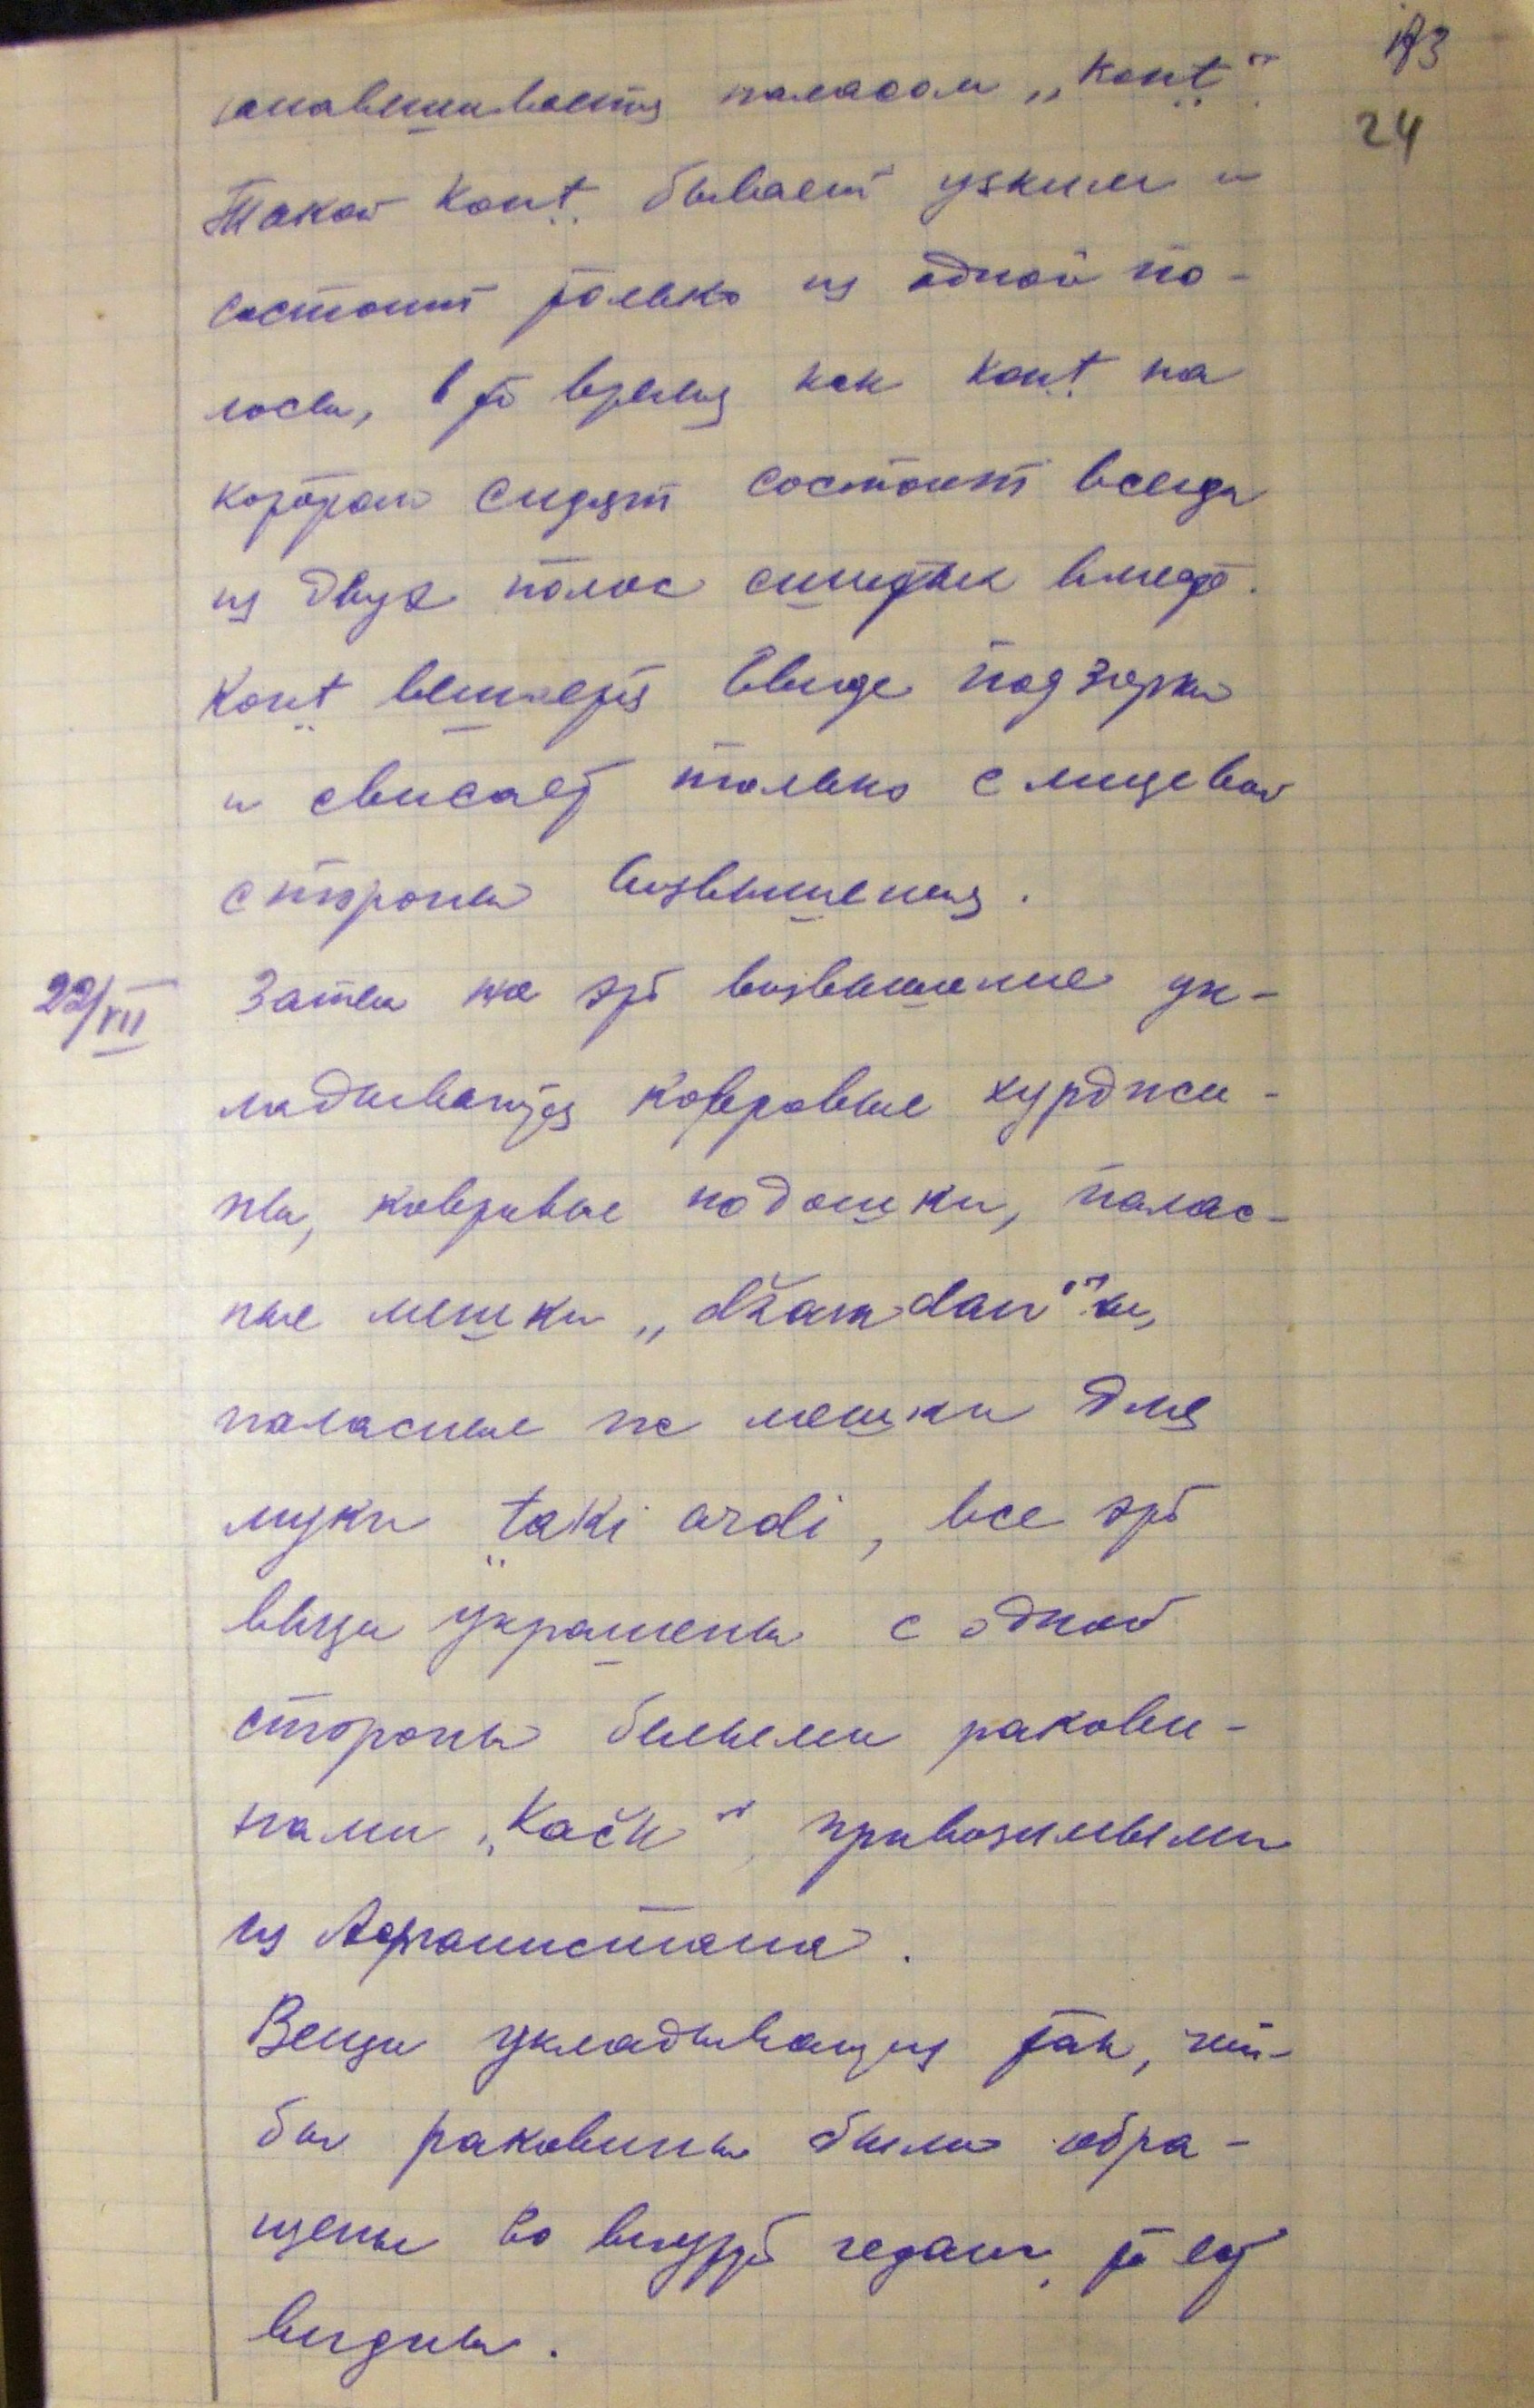 173
24
занавешивается паласом „kont"
Такой kont бывает узким и
состоит только из одной по-
лосы, в то время как kont на
котором сидят состоит всегда
из двух полос сшитых вместе.
kont вешается ввиде подзорки
и свисает только с лицевой
стороны возвышения.
22/VII Затем на это возвышение ук-
ладываются ковровые хурджи-
ны, ковровые подошки, палас-
ные мешки „džamdan"ы,
паласные же мешки для
муки taki ardi, все эти
вещи украшены с одной
стороны белыми ракови-
нами „kačk" привозимыми
из Афганистана.
Вещи укладываются так, что-
бы раковины были обра-
щены во внутрь гедана, то есть
видны.